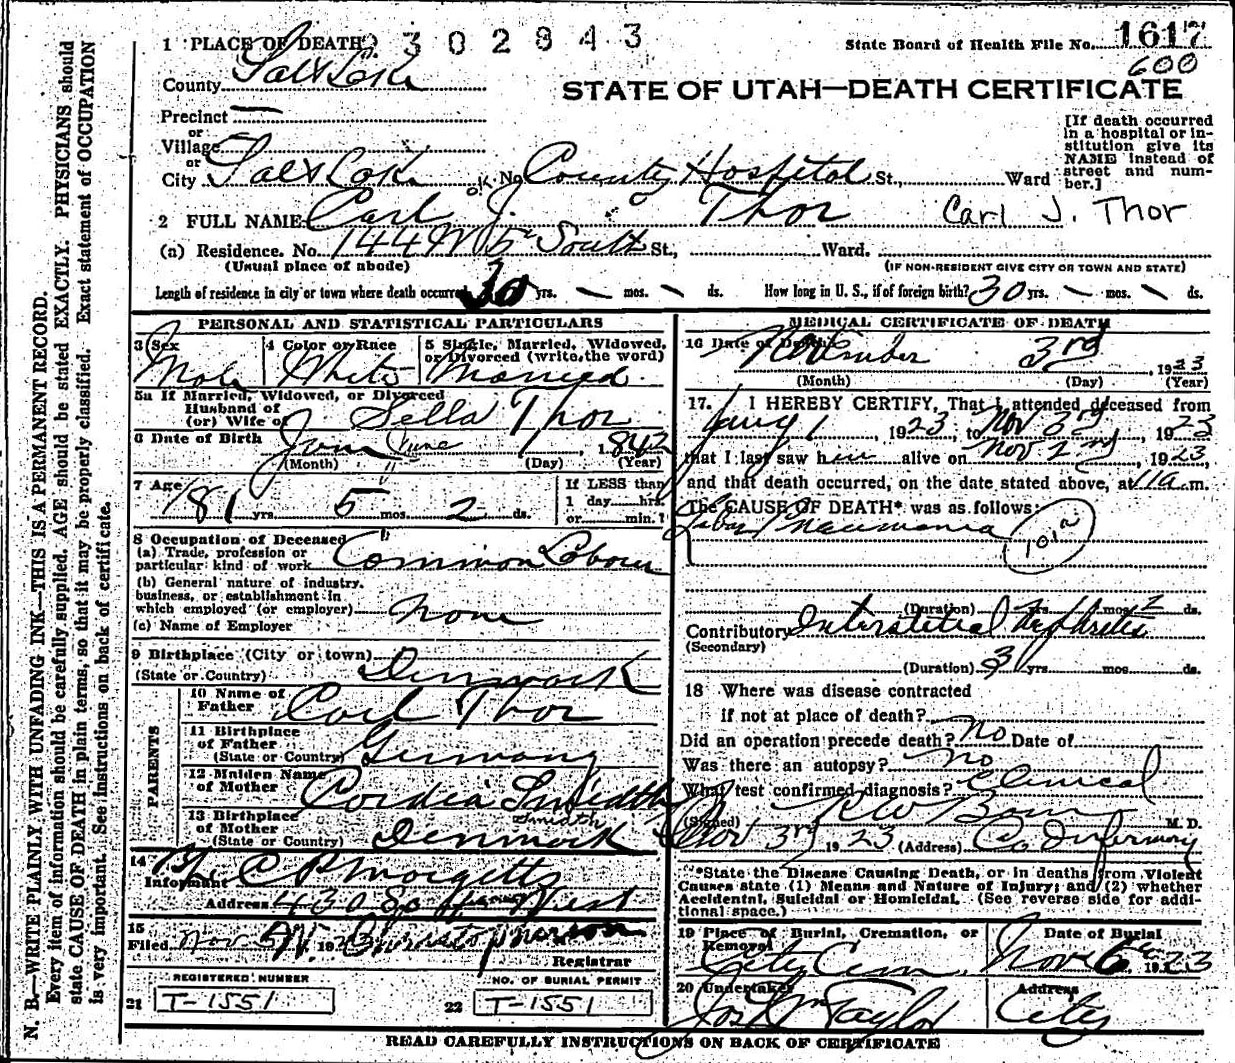 1 PLACE OF DEATH 2302843
State Board of Health File No. 1617
600
County Salt Lake
STATE OF UTAH—DEATH CERTIFICATE
Precinct —
or
Village
or
City Salt Lake OK No. County Hospital St., Ward
[If death occurred in a hospital or in-
stitution give its
NAME instead of
street and num-
ber.]
2 FULL NAME Carl J. Thor Carl J. Thor
(a) Residence. No. 144 W 5th South St., Ward.
(Usual place of abode) (IF NON-RESIDENT GIVE CITY OR TOWN AND STATE)
Length of residence in city or town where death occurred 30 yrs. — mos. — ds. How long in U. S., if of foreign birth? 30 yrs. — mos. — ds.
PERSONAL AND STATISTICAL PARTICULARS
3 Sex Male
4 Color or Race White
5 Single, Married, Widowed,
or Divorced (write the word)
Married
5a If Married, Widowed, or Divorced
Husband of
(or) Wife of J Sella Thor
6 Date of Birth June June 1842
(Month) (Day) (Year)
7 Age 81 yrs. 5 mos. 2 ds.
If LESS than
1 day hrs.
or min.?
8 Occupation of Deceased
(a) Trade, profession or
particular kind of work Common Labour
(b) General nature of industry,
business, or establishment in
which employed (or employer) None
(c) Name of Employer
9 Birthplace (City or town)
(State or Country) Denmark
PARENTS
10 Name of
Father Carl Thor
11 Birthplace
of Father
(State or Country) Germany
12 Maiden Name
of Mother Cordea Smedth
Smedth
13 Birthplace
of Mother
(State or Country) Denmark
14
Informant C P Margetts
Address 430 So 4 West
15
Filed Nov 192
Registrar
REGISTERED NUMBER NO. OF BURIAL PERMIT
21 T-1551 22 T-1551
MEDICAL CERTIFICATE OF DEATH
16 Date of Death November 3rd, 1923
(Month) (Day) (Year)
17. I HEREBY CERTIFY, That I attended deceased from
Jany 1, 1923, to Nov 3rd, 1923
that I last saw him alive on Nov 2nd, 1923,
and that death occurred, on the date stated above, at 11 a.m.
The CAUSE OF DEATH* was as follows:
Lobar Pneumonia 101a
(Duration) yrs. mos. 2 ds.
Contributory Interstitial Nephritis
(Secondary)
(Duration) 3 yrs. mos. ds.
18 Where was disease contracted
if not at place of death?
Did an operation precede death? No Date of
Was there an autopsy? No
What test confirmed diagnosis? Clinical
(Signed) R W M. D.
Nov 3rd 1923 (Address) Co Infirmary
*State the Disease Causing Death, or in deaths from Violent
Causes state (1) Means and Nature of Injury; and (2) whether
Accidental, Suicidal or Homicidal. (See reverse side for addi-
tional space.)
19 Place of Burial, Cremation, or
Removal
City Cem.
Date of Burial
Nov 6th 1923
20 Undertaker
Jos Wm Taylor
Address
City
READ CAREFULLY INSTRUCTIONS ON BACK OF CERTIFICATE
N. B.—WRITE PLAINLY WITH UNFADING INK—THIS IS A PERMANENT RECORD.
Every item of information should be carefully supplied. AGE should be stated EXACTLY. PHYSICIANS should
state CAUSE OF DEATH in plain terms, so that it may be properly classified. Exact statement of OCCUPATION
is very important. See instructions on back of certificate.